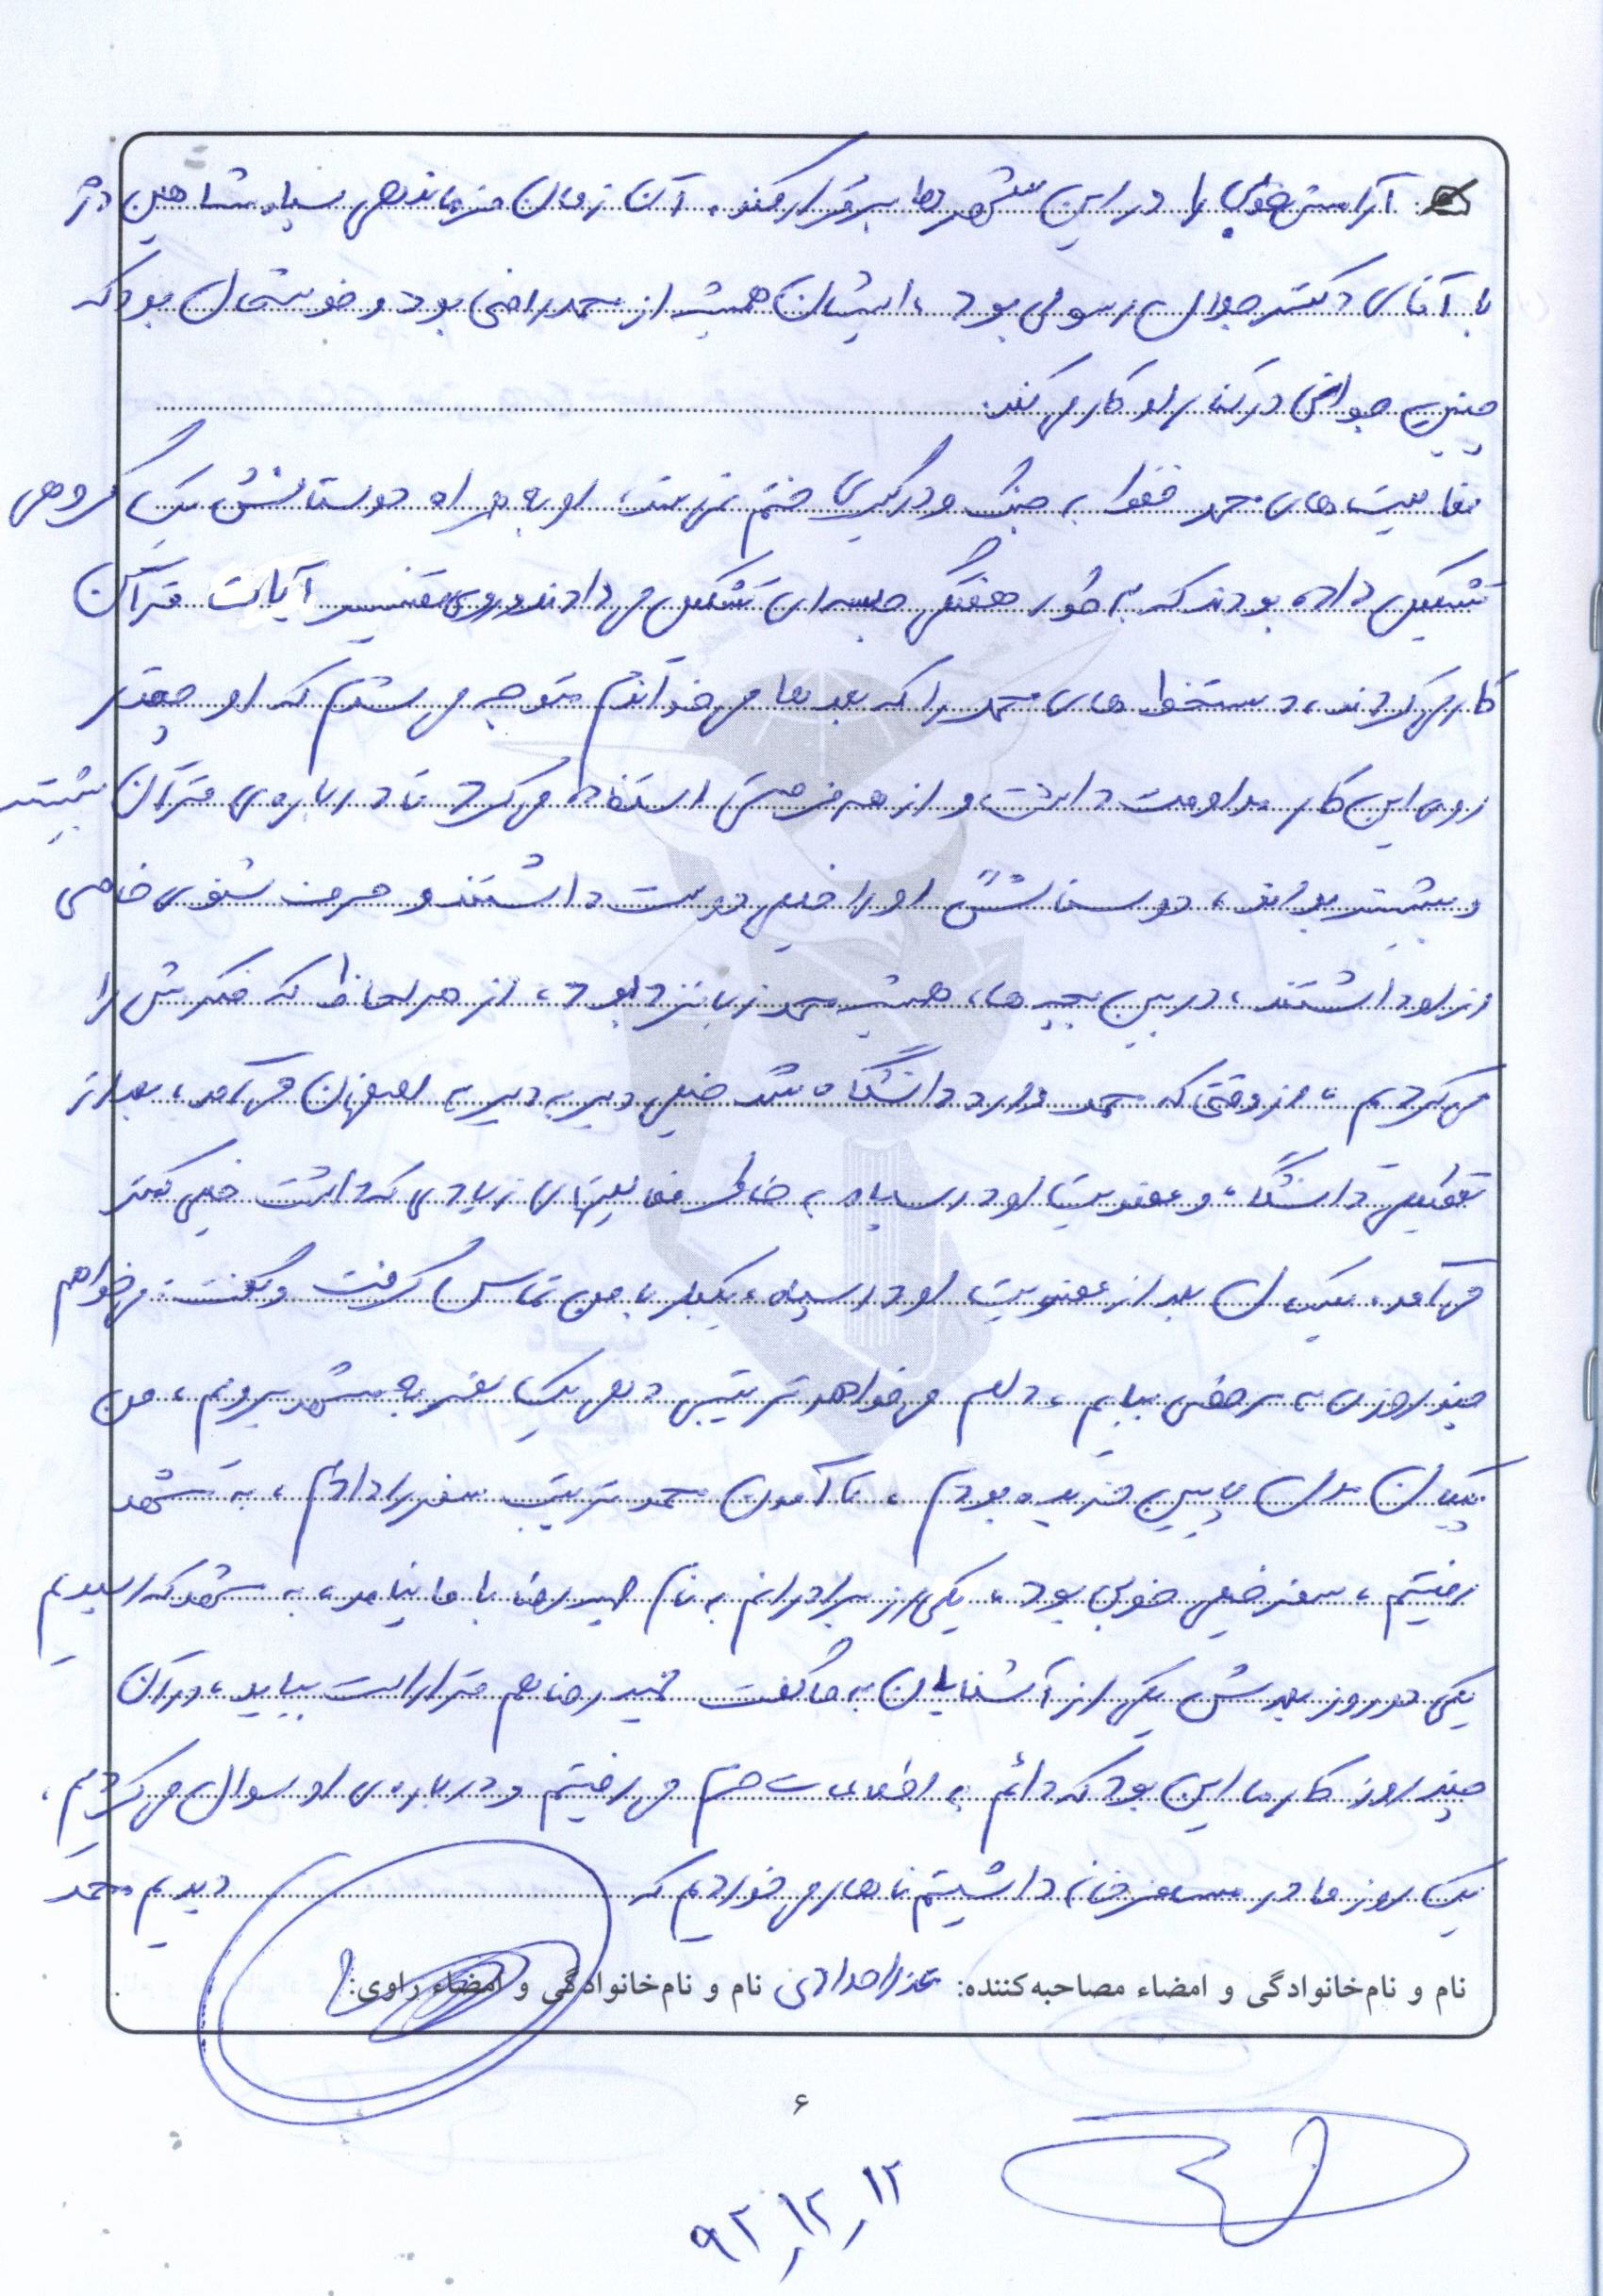 آرامش خوبی را در این شهرها برقرار کند. آن زمان فرماندهی سپاه شاهین دژ
با آقای دکتر جوان رسولی بود، ایشان همیشه از محمد راضی بود و خوشحال بود که
چنین جوانی در کنار او کار می‌کند.
فعالیت‌های محمد فقط به جنگ و درگیری ختم نمی‌شد، او به همراه دوستانش یک گروهی
تشکیل داده بودند که به طور هفتگی جلسه‌ای تشکیل می‌دادند و روی تفسیر آیات قرآن
کار می‌کردند، دستخط‌های محمد را که بعدها می‌خواندم متوجه می‌شدم که او چقدر
روی این کار مداومت داشت و از هر فرصتی استفاده می‌کرد تا درباره‌ی قرآن بیشتر
و بیشتر بداند، دوستانش او را خیلی دوست داشتند و حرف شنوی خاصی
از او داشتند، در بین بچه‌ها، همیشه محمد زبانزد بود، از هر لحاظ که فکرش را
می‌کردیم، از وقتی که محمد وارد دانشگاه شد خیلی دیر به دیر به اصفهان می‌آمد، بعد از
تعطیلی دانشگاه و عضویت او در سپاه به خاطر فعالیتهای زیادی که داشت خیلی کمتر
می‌آمد، یکسال بعد از عضویت او در سپاه، یکبار با من تماس گرفت و گفت: می‌خواهم
چند روزی به مرخصی بیایم، دلم می‌خواهد ترتیبی دهی یک سفر به مشهد برویم، من
پیکان مدل پایین خریده بودم، تا آمدن محمد ترتیب سفر را دادم، به مشهد
رفتیم، سفر خیلی خوبی بود، یکی از برادرانم به نام حمیدرضا با ما نیامد، به مشهد که رسیدیم
یکی دو روز بعدش یکی از آشنایان به ما گفت حمیدرضا هم قرار است بیاید، در آن
چند روز کار ما این بود که دائم به اطلاعات حرم می‌رفتیم و درباره‌ی او سوال می‌کردیم،
یک روز ما در مسافرخانه داشتیم ناهار می‌خوردیم که دیدیم محمد
نام و نام‌خانوادگی و امضاء مصاحبه‌کننده: نام و نام‌خانوادگی و امضاء راوی:
۶
۹۲/۱۲/۱۲